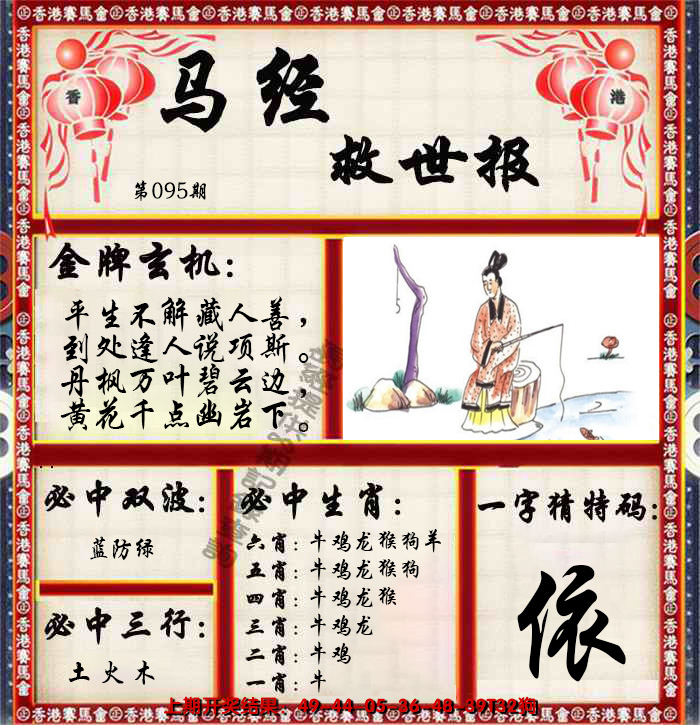 香港賽馬會
香
港
马经
救世报
第095期
金牌玄机：
平生不解藏人善，
到处逢人说项斯。
丹枫万叶碧云边，
黄花千点幽岩下。
必中双波：
蓝防绿
必中三行：
土火木
必中生肖：
六肖：牛鸡龙猴狗羊
五肖：牛鸡龙猴狗
四肖：牛鸡龙猴
三肖：牛鸡龙
二肖：牛鸡
一肖：牛
一字猜特码：
依
上期开奖结果：49-44-05-36-48-39T32狗